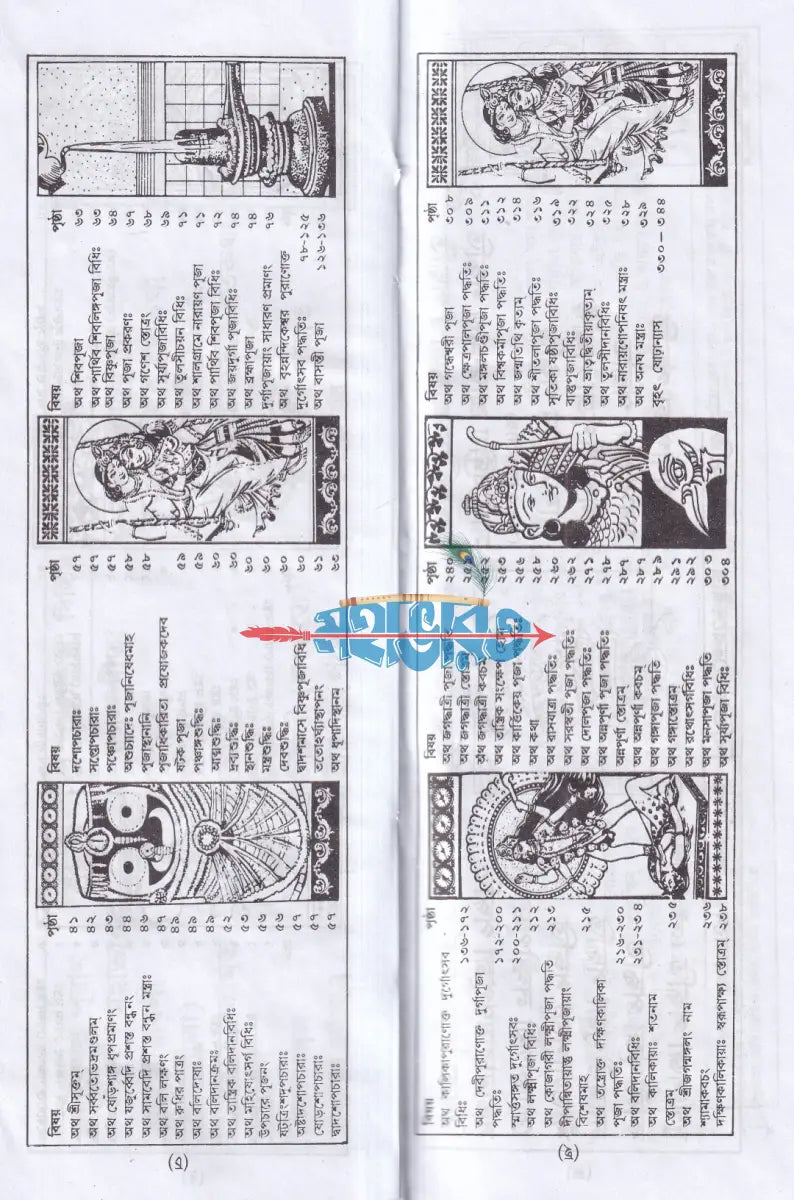 বিষয় পৃষ্ঠা
অথ শ্রীসূক্তম ৪১
অথ সর্ব্বতোভদ্রমণ্ডলম্ ৪২
অথ ষোড়শাঙ্গ ধূপপ্রমাণং ৪৩
অথ যজুর্ব্বেদি প্রশস্ত বন্ধনং ৪৪
অথ সামবেদি প্রশস্ত বন্ধন মন্ত্রাঃ ৪৬
অথ বলি লক্ষণং ৪৭
অথ রুধির পাত্রং ৪৯
অথ বলিদেয়াঃ ৪৯
অথ বলিদানক্রমঃ ৪৯
অথ তান্ত্রিক বলিদানবিধিঃ ৫২
অথ মহিষোৎসর্গ বিধিঃ ৫৩
উপচারে পূজনং ৫৬
ষট্ত্রিংশদুপচারাঃ ৫৬
অষ্টাদশোপচারাঃ ৫৭
ষোড়শোপচারাঃ ৫৭
দ্বাদশোপচারাঃ ৫৭
বিষয় পৃষ্ঠা
দশোপচারাঃ ৫৭
সপ্তোপচারাঃ ৫৭
পঞ্চোপচারাঃ ৫৭
অশুচ্যাদেঃ পূজানিষেধমাহ ৫৮
পূজাস্থানানি ৫৮
পূজাধিকারিতা প্রযোজকদেব
ষট্ক পূজা ৫৯
পঞ্চাঙ্গশুদ্ধিঃ ৫৯
আত্মশুদ্ধিঃ ৬০
দ্রব্যশুদ্ধিঃ ৬০
স্থানশুদ্ধিঃ ৬০
মন্ত্রশুদ্ধিঃ ৬০
দেবশুদ্ধিঃ ৬০
দ্বাদশমাসে বিষ্ণুপূজাবিধি ৬০
ততোহর্ঘ্যস্থাপনং ৬১
অথ ধূপাদিস্থানম ৬৩
বিষয় পৃষ্ঠা
অথ শিবপূজা ৬৩
অথ পার্থিব শিবলিঙ্গপূজা বিধিঃ ৬৩
অথ বিষ্ণুপূজা ৬৪
অথ পূজা প্রকরণঃ ৬৭
অথ গণেশ স্তোত্রং ৬৮
অথ সূর্য্যপূজাবিধিঃ ৬৯
অথ তুলসীচয়ন বিধিঃ ৭১
অথ শালগ্রামে নারায়ণ পূজা ৭১
অথ পার্থিব শিবপূজা বিধিঃ ৭২
অথ জয়দুর্গা পূজাবিধিঃ ৭৪
অথ ব্রহ্মাপূজা ৭৪
দুর্গাপূজায়াং সাধারণ প্রমাণং ৭৬
অথ বৃহন্নন্দিকেশ্বর পুরাণোক্ত
দুর্গোৎসব পদ্ধতিঃ ৭৮-১২৫
অথ বাসন্তী পূজা ১২৬-১৩৬
(চ)
বিষয় পৃষ্ঠা
অথ কালিকাপুরাণোক্ত দুর্গোৎসব
বিধিঃ ১৩৬-১৭২
অথ দেবীপুরাণোক্ত দুর্গাপূজা
পদ্ধতিঃ ১৭২-২০০
স্মার্ত্তসম্মত দুর্গোৎসবঃ ২০০-২১১
অথ লক্ষ্মীপূজা বিধিঃ ২১২
অথ কোজাগরী লক্ষ্মীপূজা পদ্ধতি ২১৩
দীপান্বিতায়ান্তু লক্ষ্মীপূজায়াং
বিশেষমাহ ২১৫
অথ তন্ত্রোক্ত দক্ষিণকালিকা
পূজা পদ্ধতিঃ ২১৬-২৩০
অথ বলিদানবিধিঃ ২৩১-২৩৪
অথ কালিকায়াঃ শতনাম
স্তোত্রম্ ২৩৫
অথ শ্রীজগন্মঙ্গলং নাম
শ্যামাকবচং ২৩৬
দক্ষিণকালিকায়াঃ স্বরূপাখ্য স্তোত্রম্ ২৩৮
বিষয় পৃষ্ঠা
অথ জগদ্ধাত্রী পূজা পদ্ধতি ২৪০
অথ জগদ্ধাত্রী স্তোত্রম্
অথ জগদ্ধাত্রী কবচম্ ২৫২
অথ তান্ত্রিক সংক্ষেপ হোম ২৫৩
অথ কার্ত্তিকেয় পূজা পদ্ধতিঃ ২৫৬
অথ কথা ২৫৮
অথ রাসযাত্রা পদ্ধতিঃ ২৬০
অথ সরস্বতী পূজা পদ্ধতিঃ ২৬২
অথ দোলপূজা পদ্ধতিঃ ২৭১
অথ অন্নপূর্ণা পূজা পদ্ধতিঃ ২৭৮
অন্নপূর্ণা স্তোত্রম্ ২৮৭
অথ অন্নপূর্ণা কবচম্ ২৮৭
অথ গঙ্গাপূজা পদ্ধতি ২৮৯
অথ গঙ্গাস্তোত্রম্ ২৯১
অথ রথোৎসর্গবিধিঃ ২৯২
অথ মনসাপূজা পদ্ধতি ৩০৩
অথ সূর্য্যপূজা বিধিঃ ৩০৪
বিষয় পৃষ্ঠা
অথ গন্ধেশ্বরী পূজা ৩০৮
অথ ক্ষেত্রপালপূজা পদ্ধতিঃ ৩০৯
অথ মঙ্গলচণ্ডীপূজা পদ্ধতিঃ ৩১১
অথ বিশ্বকর্মাপূজা পদ্ধতিঃ ৩১২
অথ জন্মতিথি কৃত্যম্ ৩১৪
অথ শীতলাপূজা পদ্ধতিঃ ৩১৬
সূতিকা ষষ্ঠীপূজাবিধিঃ ৩১৯
বাস্তুপূজাবিধিঃ ৩২২
অথ ভ্রাতৃদ্বিতীয়াকৃত্যম্ ৩২৪
অথ তুলসীদানবিধিঃ ৩২৫
অথ নারায়ণোপনিষৎ মন্ত্রাঃ ৩২৮
অথ অনঘ মন্ত্রাঃ ৩২৯
বৃহৎ ষোঢ়ান্যাস ৩৩০—৩৪৪
মহাভারত